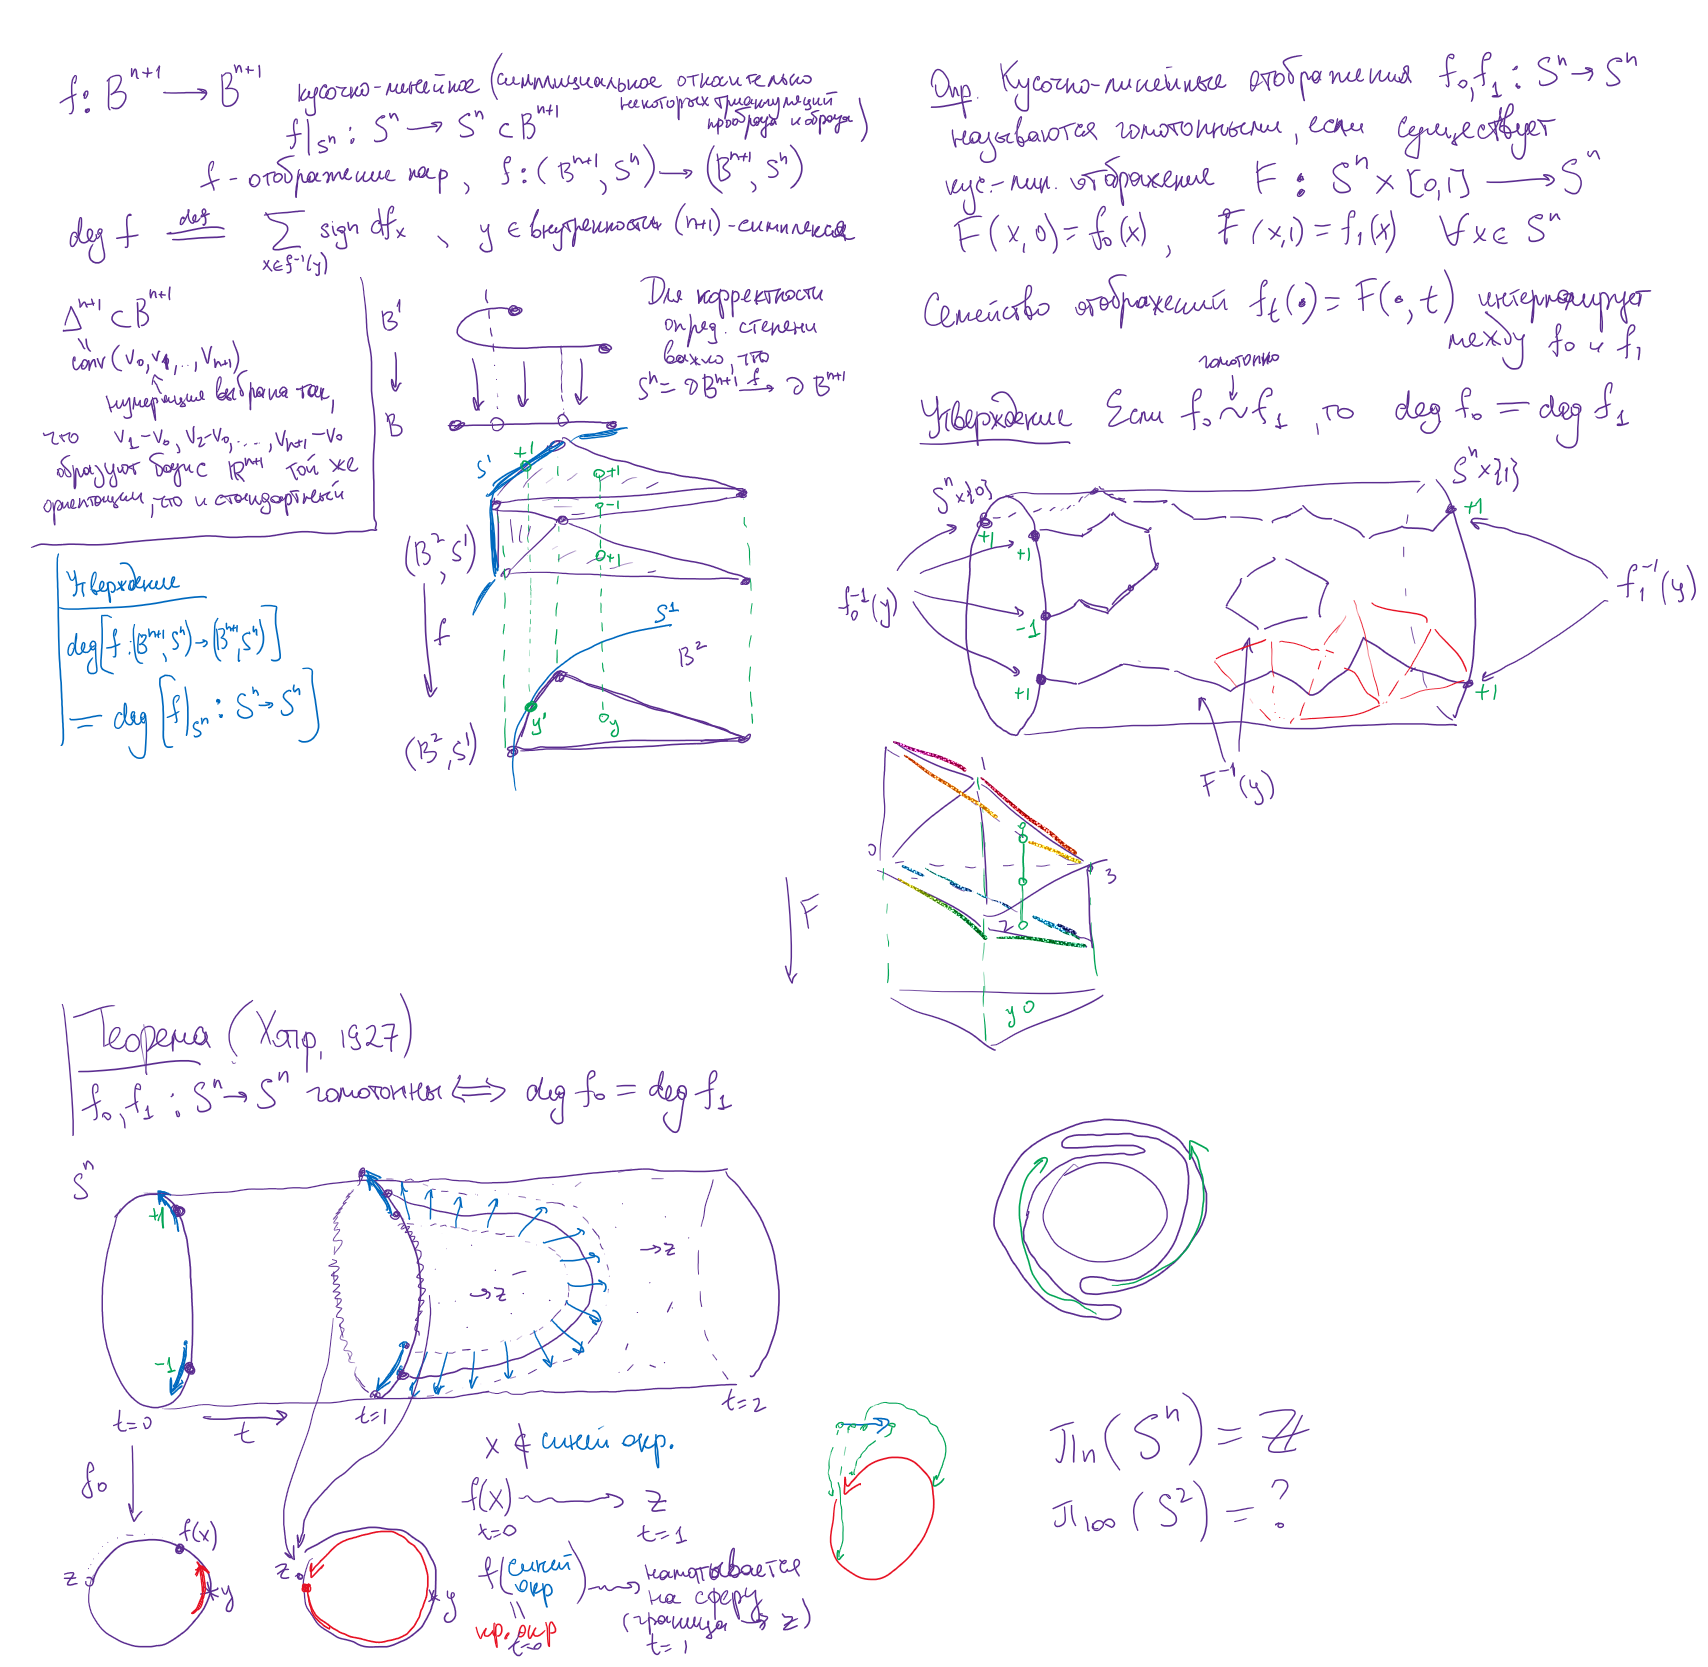 f: Bⁿ⁺¹ → Bⁿ⁺¹ кусочно-линейное (симплициальное относительно
некоторых триангуляций
прообраза и образа)
f|Sⁿ : Sⁿ → Sⁿ ⊂ Bⁿ⁺¹
f - отображение пар, f: (Bⁿ⁺¹, Sⁿ) → (Bⁿ⁺¹, Sⁿ)
deg f ≝ Σ sign df_x, y ∈ внутренность (n+1)-симплекса
x∈f⁻¹(y)
Δⁿ⁺¹ ⊂ Bⁿ⁺¹
"
conv(v₀, v₁, ..., vₙ₊₁)
нумерация выбрана так,
что v₁-v₀, v₂-v₀, ..., vₙ₊₁-v₀
образуют базис ℝⁿ⁺¹ той же
ориентации, что и стандартный
B¹
B
Для корректности
опред. степени
важно, что
Sⁿ = ∂Bⁿ⁺¹ →f ∂Bⁿ⁺¹
S¹
+1
+1
-1
+1
(B², S¹)
f
S¹
B²
y'
y
(B², S¹)
Утверждение
deg[f: (Bⁿ⁺¹, Sⁿ) → (Bⁿ⁺¹, Sⁿ)]
= deg [f|Sⁿ : Sⁿ → Sⁿ]
Опр. Кусочно-линейные отображения f₀, f₁ : Sⁿ → Sⁿ
называются гомотопными, если существует
кус.-лин. отображение F : Sⁿ × [0,1] → Sⁿ
F(x, 0) = f₀(x), F(x,1) = f₁(x) ∀x ∈ Sⁿ
Семейство отображений f_t(•) = F(•, t) интерполирует
между f₀ и f₁
гомотопно
Утверждение Если f₀ ~ f₁, то deg f₀ = deg f₁
Sⁿ×{0}
Sⁿ×{1}
+1
+1
-1
+1
+1
+1
f₀⁻¹(y)
f₁⁻¹(y)
F⁻¹(y)
0
1
2
3
F
y
Теорема (Хопф, 1927)
f₀, f₁ : Sⁿ → Sⁿ гомотопны ⟺ deg f₀ = deg f₁
Sⁿ
+1
-1
→z
→z
t=0
t
t=1
t=2
f₀
f(x)
z
y
z
y
x ∉ синей окр.
f(x) → z
t=0 t=1
f(синей окр) → наматывается
на сферу
(граница → z)
"
кр. окр
t=0
t=1
πₙ(Sⁿ) = ℤ
π₁₀₀(S²) = ?